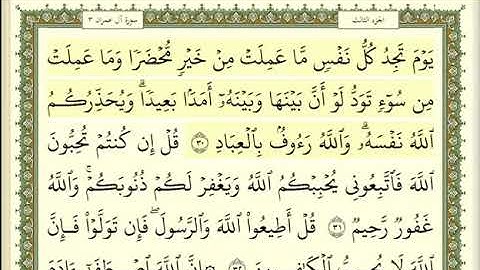 سورة آل عمران ٣ الجزء الثالث
يَوۡمَ تَجِدُ كُلُّ نَفۡسٖ مَّا عَمِلَتۡ مِنۡ خَيۡرٖ مُّحۡضَرٗا وَمَا عَمِلَتۡ
مِن سُوٓءٖ تَوَدُّ لَوۡ أَنَّ بَيۡنَهَا وَبَيۡنَهُۥٓ أَمَدَۢا بَعِيدٗاۗ وَيُحَذِّرُكُمُ
ٱللَّهُ نَفۡسَهُۥۗ وَٱللَّهُ رَءُوفُۢ بِٱلۡعِبَادِ ٣٠ قُلۡ إِن كُنتُمۡ تُحِبُّونَ
ٱللَّهَ فَٱتَّبِعُونِي يُحۡبِبۡكُمُ ٱللَّهُ وَيَغۡفِرۡ لَكُمۡ ذُنُوبَكُمۡۚ وَٱللَّهُ
غَفُورٞ رَّحِيمٞ ٣١ قُلۡ أَطِيعُواْ ٱللَّهَ وَٱلرَّسُولَۖ فَإِن تَوَلَّوۡاْ فَإِنَّ
ٱللَّهَ لَا يُحِبُّ ٱلۡكَٰفِرِينَ ٣٢ إِنَّ ٱللَّهَ ٱصۡطَفَىٰٓ ءَادَمَ